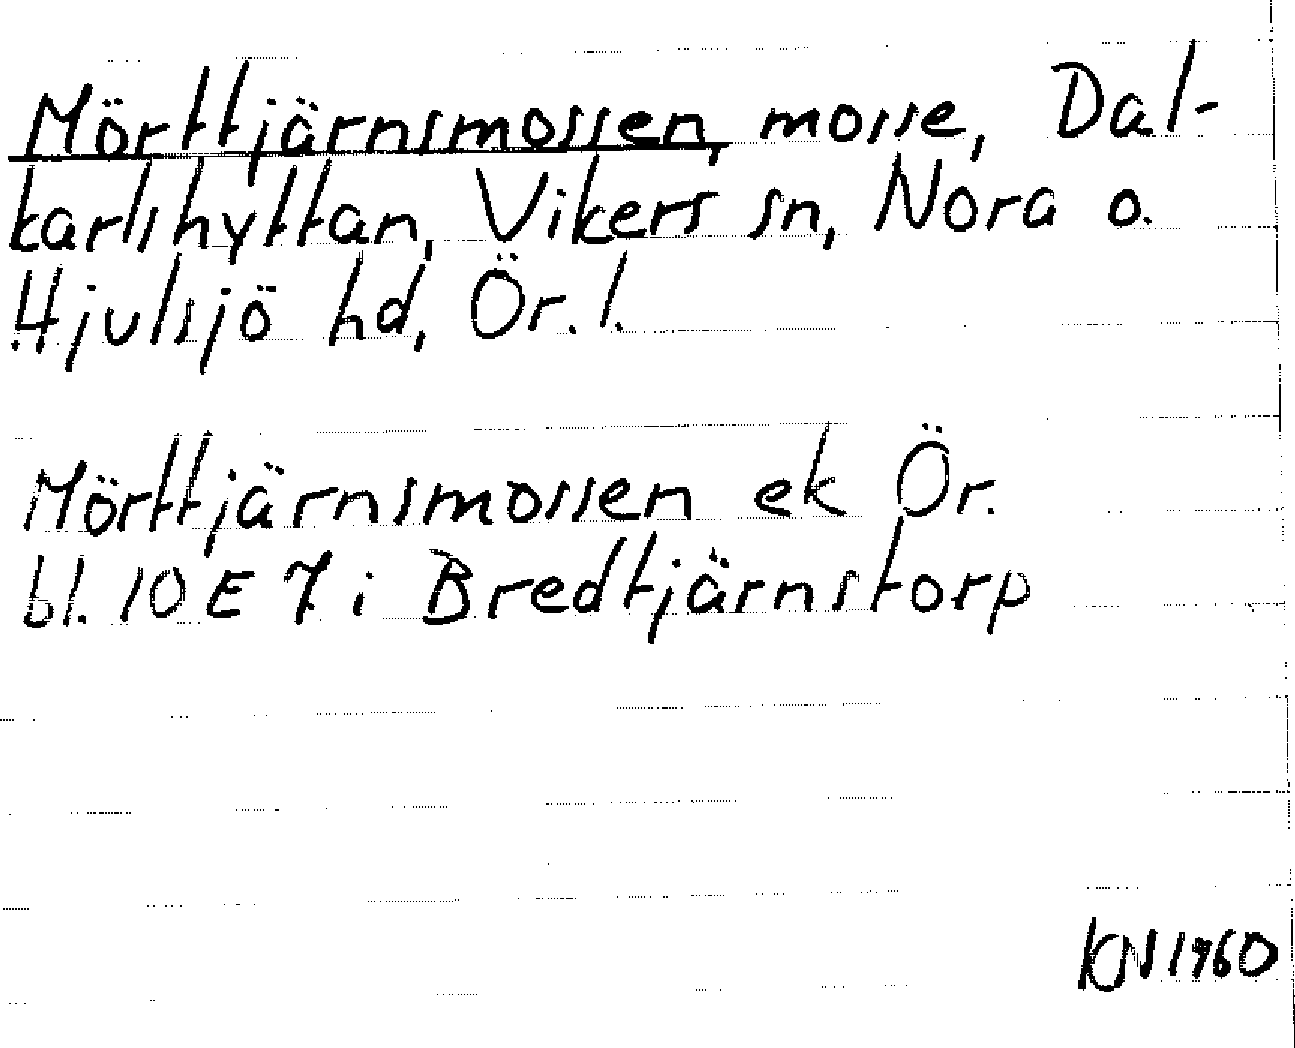 Mörttjärnsmossen, mosse, Dal-
karlshyttan, Vikers sn, Nora o.
Hjulsjö hd, Ör. l.
Mörttjärnsmossen ek Ör.
bl. 10 E 7 i Bredtjärnstorp
KN 1960